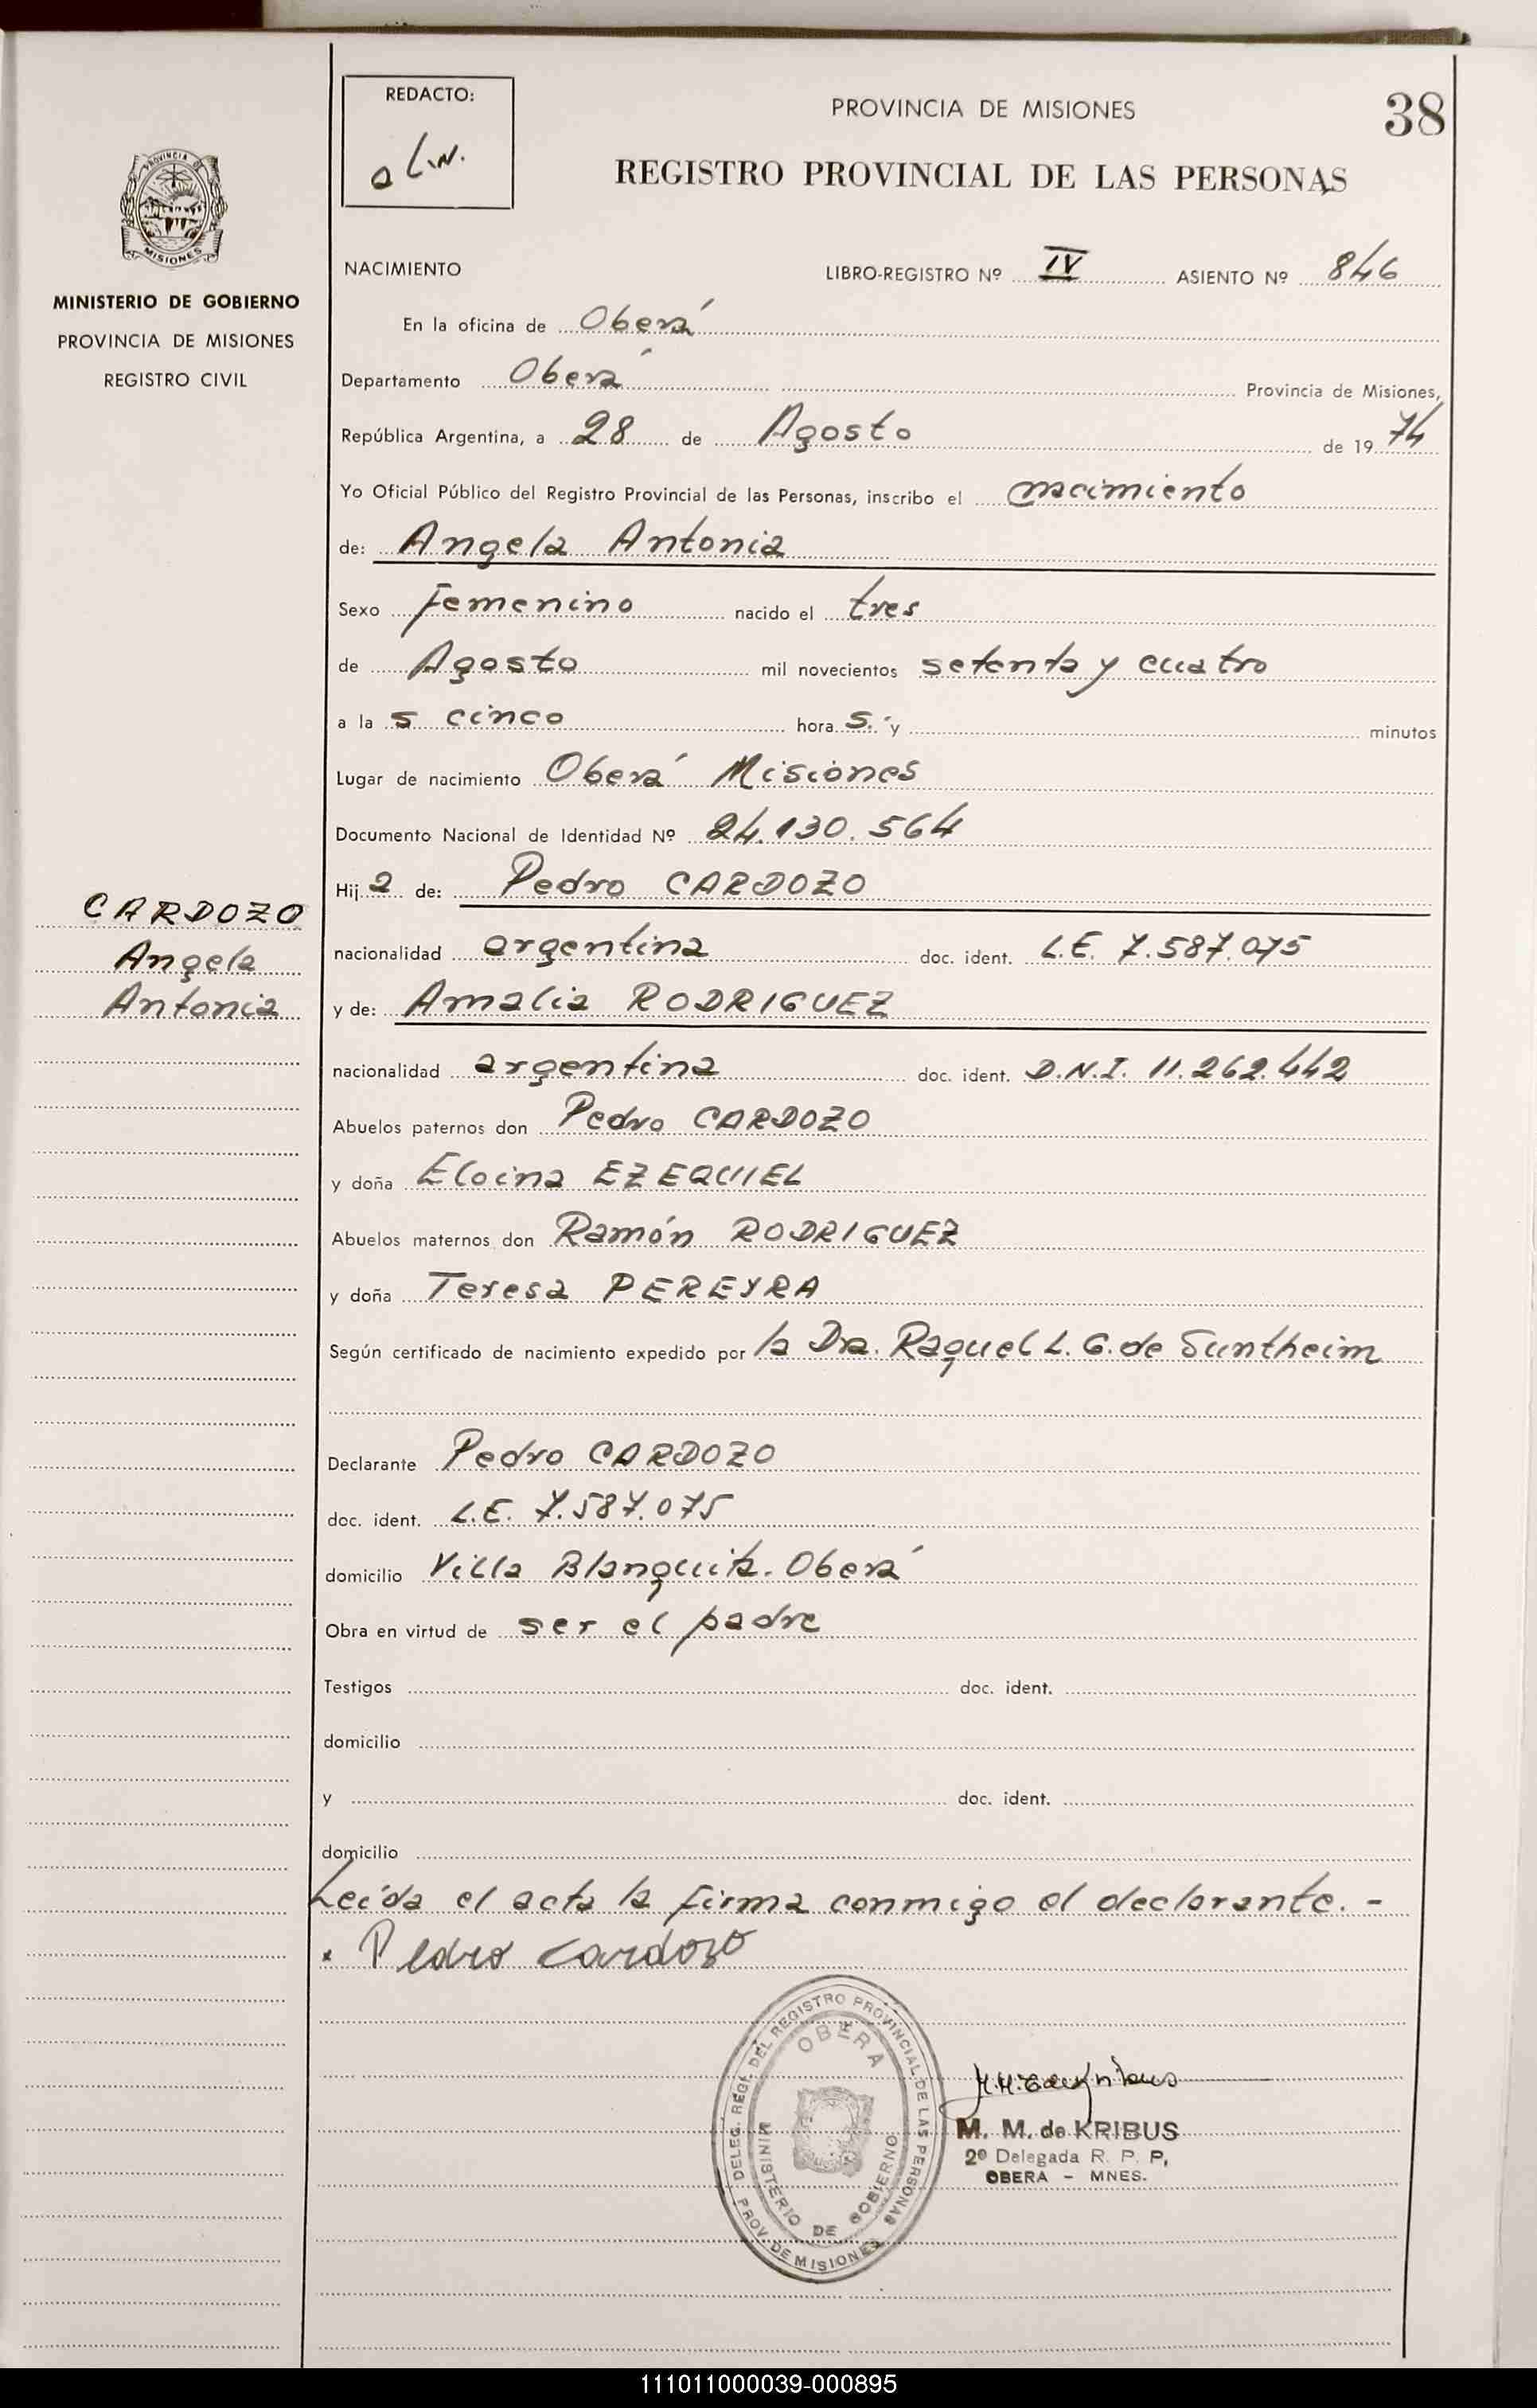 REDACTO:
a L.N.
PROVINCIA DE MISIONES
38
REGISTRO PROVINCIAL DE LAS PERSONAS
PROVINCIA DE
MISIONES
MINISTERIO DE GOBIERNO
PROVINCIA DE MISIONES
REGISTRO CIVIL
NACIMIENTO LIBRO-REGISTRO Nº IV ASIENTO Nº 846
En la oficina de Oberá
Departamento Oberá Provincia de Misiones,
República Argentina, a 28 de Agosto de 1974
Yo Oficial Público del Registro Provincial de las Personas, inscribo el nacimiento
de: Angela Antonia
Sexo Femenino nacido el tres
de Agosto mil novecientos setenta y cuatro
a la s cinco hora s. y minutos
Lugar de nacimiento Oberá Misiones
Documento Nacional de Identidad Nº 24.130.564
Hija de: Pedro CARDOZO
CARDOZO
Angela
Antonia
nacionalidad argentina doc. ident. L.E. 7.587.075
y de: Amalia RODRIGUEZ
nacionalidad argentina doc. ident. D.N.I. 11.262.442
Abuelos paternos don Pedro CARDOZO
y doña Eloina EZEQUIEL
Abuelos maternos don Ramón RODRIGUEZ
y doña Teresa PEREYRA
Según certificado de nacimiento expedido por la Dra. Raquel L. G. de Suntheim
Declarante Pedro CARDOZO
doc. ident. L.E. 7.587.075
domicilio Villa Blanquita. Oberá
Obra en virtud de ser el padre
Testigos doc. ident.
domicilio
y doc. ident.
domicilio
Leída el acta la firma conmigo el declarante. -
Pedro Cardozo
DELEG. REGI. DEL REGISTRO PROVINCIAL DE LAS PERSONAS
OBERA
MINISTERIO DE GOBIERNO
PROV. DE MISIONES
M. M. de KRIBUS
2º Delegada R. P. P,
OBERA - MNES.
111011000039-000895